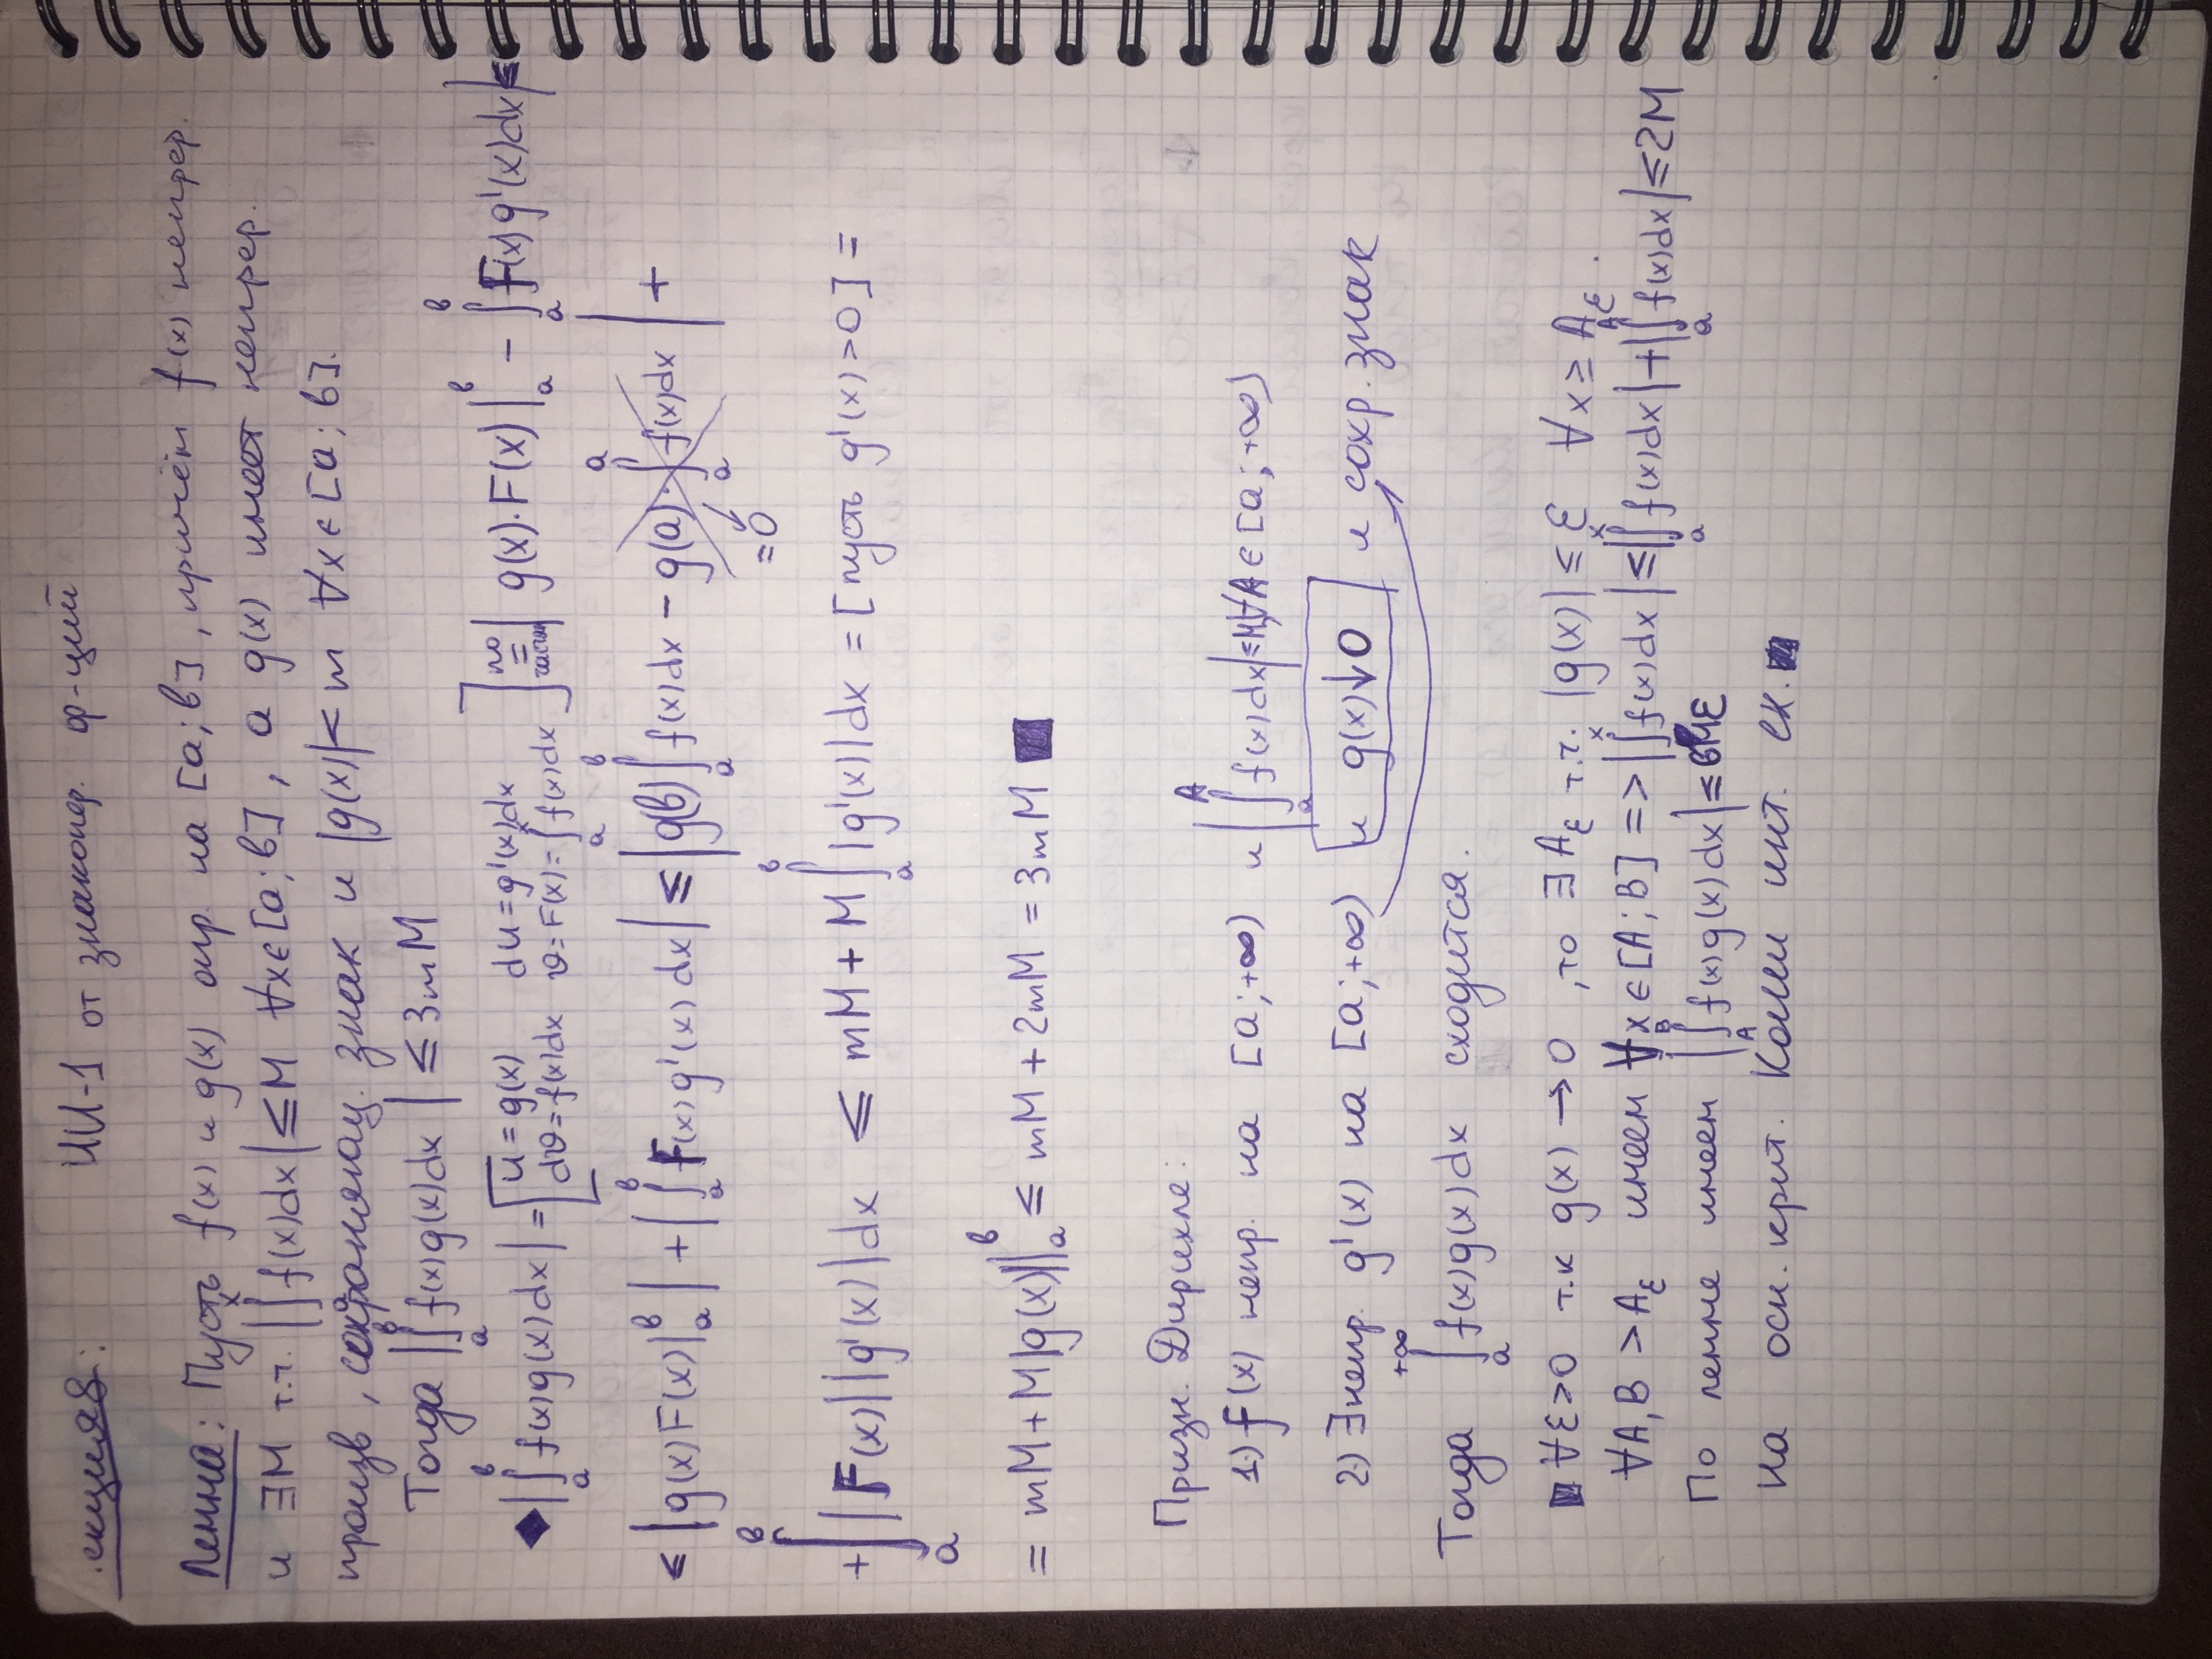 Лекция 8: НИ-1 от знакопер. ф-ций
Лемма: Пусть f(x) и g(x) опр. на [a; b], причём f(x) непрер.
и ∃M т.ч. |∫ₐˣ f(x)dx| ≤ M ∀x∈[a; b], а g(x) имеет непрер.
произв, сохраняющ. знак и |g(x)| < m ∀x∈[a; b].
Тогда |∫ₐᵇ f(x)g(x)dx| ≤ 3mM
◆ |∫ₐᵇ f(x)g(x)dx| = [u = g(x) du = g'(x)dx
dv = f(x)dx v = F(x) = ∫ₐˣ f(x)dx] по = частям |g(x)·F(x)|ₐᵇ − ∫ₐᵇ F(x)g'(x)dx| ≤
≤ |g(x)F(x)|ₐᵇ| + |∫ₐᵇ F(x)g'(x)dx| ≤ |g(b)∫ₐᵇ f(x)dx − g(a)·∫ₐᵃ f(x)dx| +
=0
+ ∫ₐᵇ |F(x)||g'(x)|dx ≤ mM + M∫ₐᵇ |g'(x)|dx = [пусть g'(x)>0] =
= mM + M|g(x)||ₐᵇ ≤ mM + 2mM = 3mM ■
Призн. Дирихле:
1.) f(x) непр. на [a; +∞) и |∫ₐᴬ f(x)dx| ≤ M, ∀A∈[a; +∞)
2.) ∃непр. g'(x) на [a; +∞) и g(x)↓0 и сохр. знак
Тогда ∫ₐ^{+∞} f(x)g(x)dx сходится.
■ ∀ε>0 т.к g(x) → 0, то ∃A_ε т.ч. |g(x)| ≤ ε ∀x ≥ A_ε.
∀A,B > A_ε имеем ∀x∈[A; B] => |∫ˣ f(x)dx| ≤ |∫ₐˣ f(x)dx| + |∫ₐᴬ f(x)dx| ≤ 2M
По лемме имеем |∫_A^B f(x)g(x)dx| ≤ 6Mε
На осн. крит. Коши инт. сх. ■